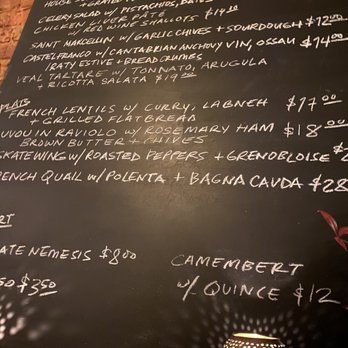 CELERY SALAD W/ PISTACHIOS, DATES
CHICKEN LIVER PÂTÉ
W/ RED WINE SHALLOTS $19.50
SAINT MARCELLIN W/ GARLIC CHIVES + SOURDOUGH $12.00
CASTELFRANCO W/ CANTABRIAN ANCHOVY VIN, OSSAU $14.00
IRATY ESTIVE + BREAD CRUMBS
VEAL TARTARE W/ TONNATO, ARUGULA
+ RICOTTA SALATA $19.00
PLATS
FRENCH LENTILS W/ CURRY, LABNEH $17.00
+ GRILLED FLATBREAD
UVOU IN RAVIOLO W/ ROSEMARY HAM $18.00
BROWN BUTTER + CHIVES
SKATEWING W/ ROASTED PEPPERS + GRENOBLOISE $2
RENCH QUAIL W/ POLENTA + BAGNA CAUDA $28
RT
ATE NEMESIS $8.00
CAMEMBERT
W/ QUINCE $12
SO $3.50